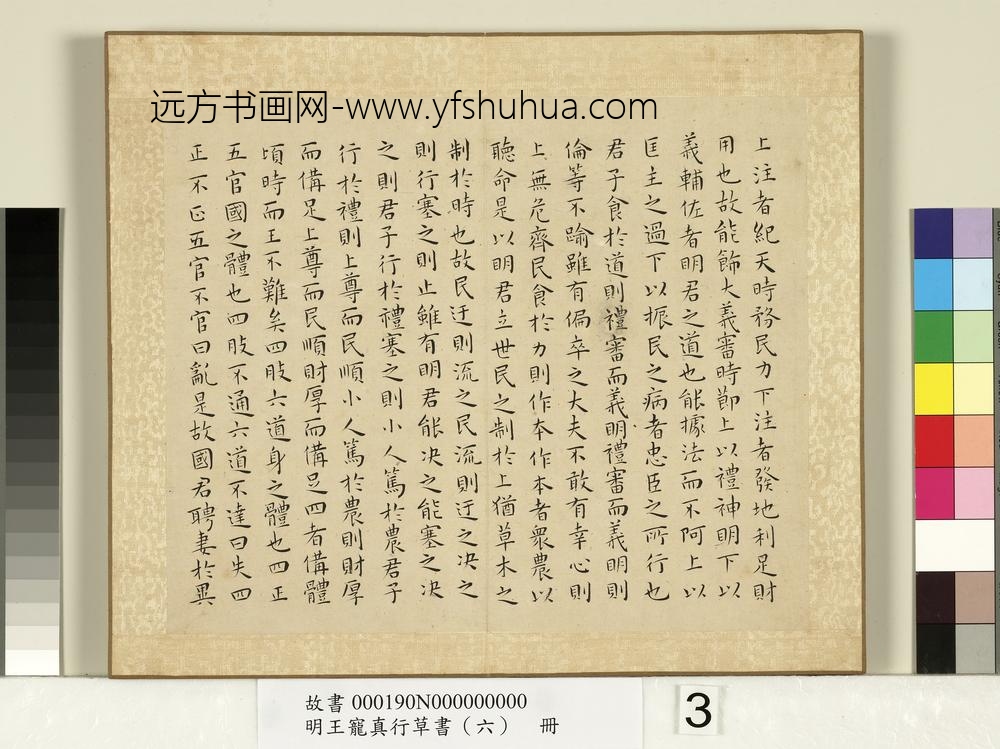 远方书画网-www.yfshuhua.com
上注者紀天時務民力下注者發地利足財
用也故能飾大義審時節上以禮神明下以
義輔佐者明君之道也能據法而不阿上以
匡主之過下以振民之病者忠臣之所行也
君子食於道則禮審而義明禮審而義明則
倫等不踰雖有偏卒之大夫不敢有幸心則
上無危齊民食於力則作本作本者衆農以
聽命是以明君立世民之制於上猶草木之
制於時也故民迂則流之民流則迂之决之
則行塞之則止雖有明君能决之能塞之决
之則君子行於禮塞之則小人篤於農君子
行於禮則上尊而民順小人篤於農則財厚
而備足上尊而民順財厚而備足四者備體
頃時而王不難矣四肢六道身之體也四正
五官國之體也四肢不通六道不達曰失四
正不正五官不官曰亂是故國君聘妻於異
故書000190N000000000
明王寵真行草書（六） 冊
3